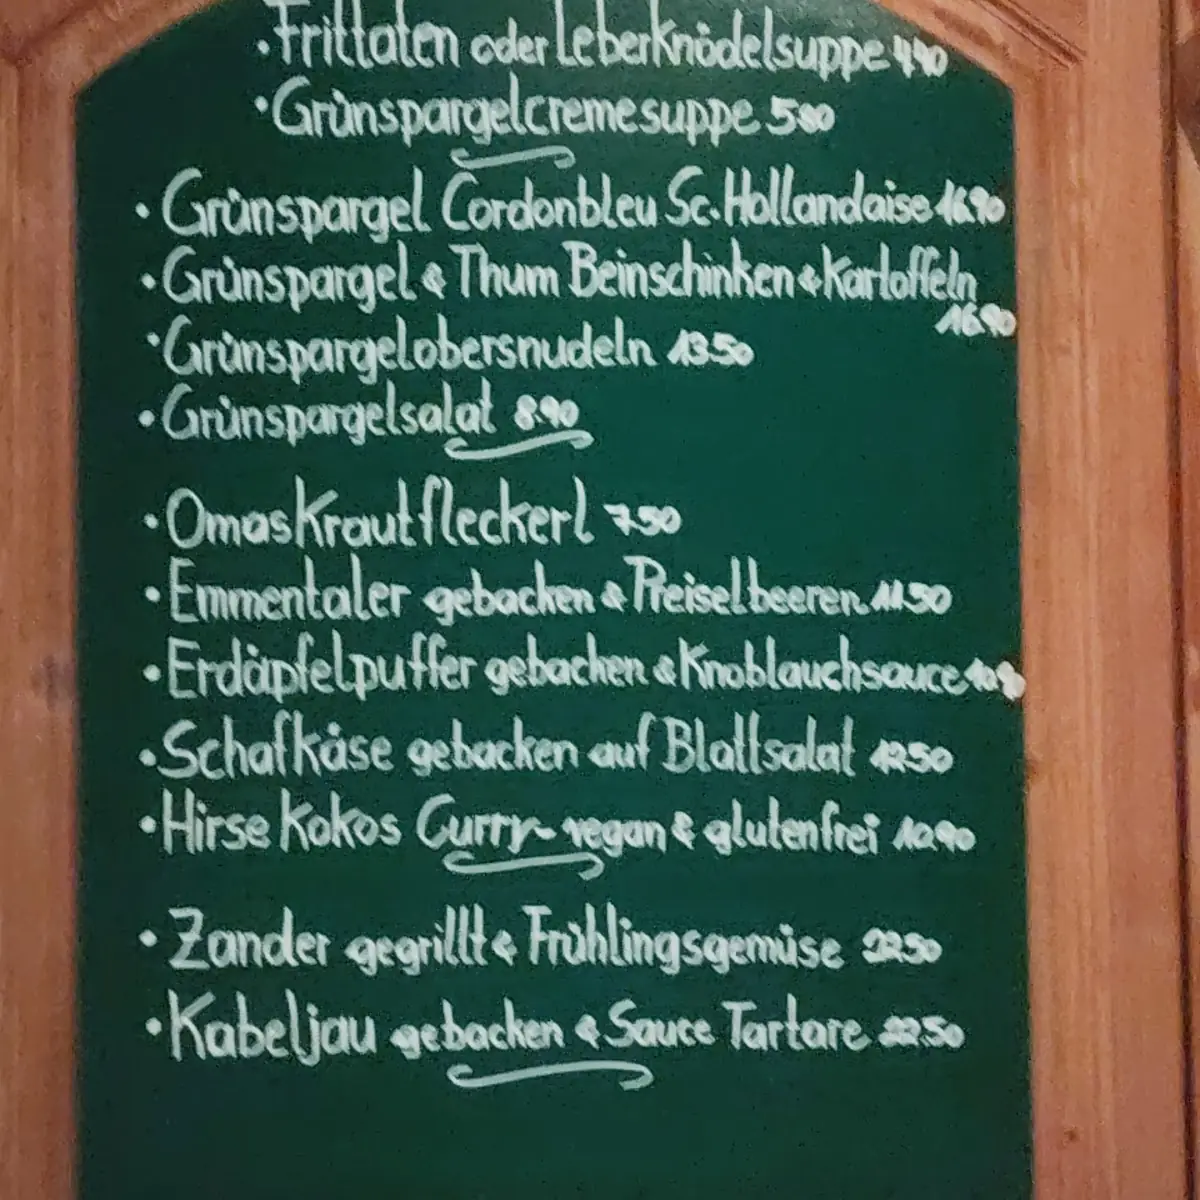 ·Frittaten oder Leberknödelsuppe 4,40
·Grünspargelcremesuppe 5.80
·Grünspargel Cordonbleu Sc. Hollandaise 16.90
·Grünspargel & Thum Beinschinken & Kartoffeln
16.90
·Grünspargelobersnudeln 13.50
·Grünspargelsalat 8.90
·Omas Krautfleckerl 7.50
·Emmentaler gebacken & Preiselbeeren 11.50
·Erdäpfelpuffer gebacken & Knoblauchsauce 10.90
·Schafkäse gebacken auf Blattsalat 12.50
·Hirse Kokos Curry - vegan & glutenfrei 10.90
·Zander gegrillt & Frühlingsgemüse 22.50
·Kabeljau gebacken & Sauce Tartare 22.50